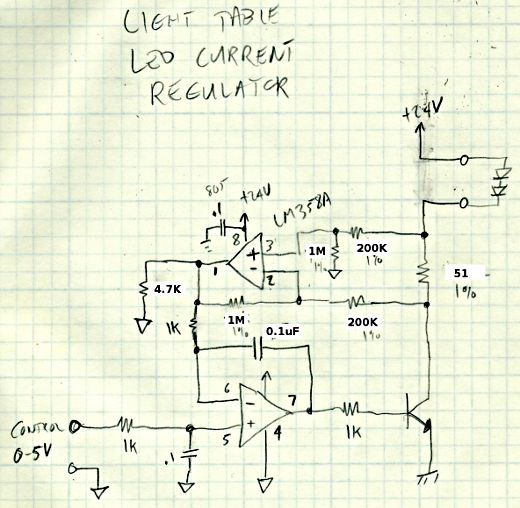 LIGHT TABLE
LED CURRENT
REGULATOR
+24V
805
.1
+24V
LM358A
8
3
+
1
-
2
1M
1%
200K
1%
51
1%
4.7K
1K
1M
1%
200K
1%
0.1uF
6
-
7
+
5
4
CONTROL
0-5V
1K
.1
1K